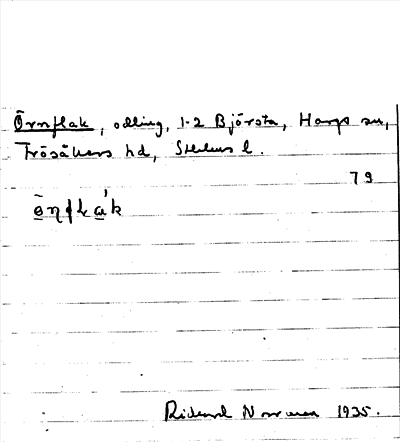 Örnflak, odling, 1-2 Björsta, Hargs sn,
Frösåkers hd, Sthlms l.
79
ö̀ṇflák
Rickard Norman 1935.